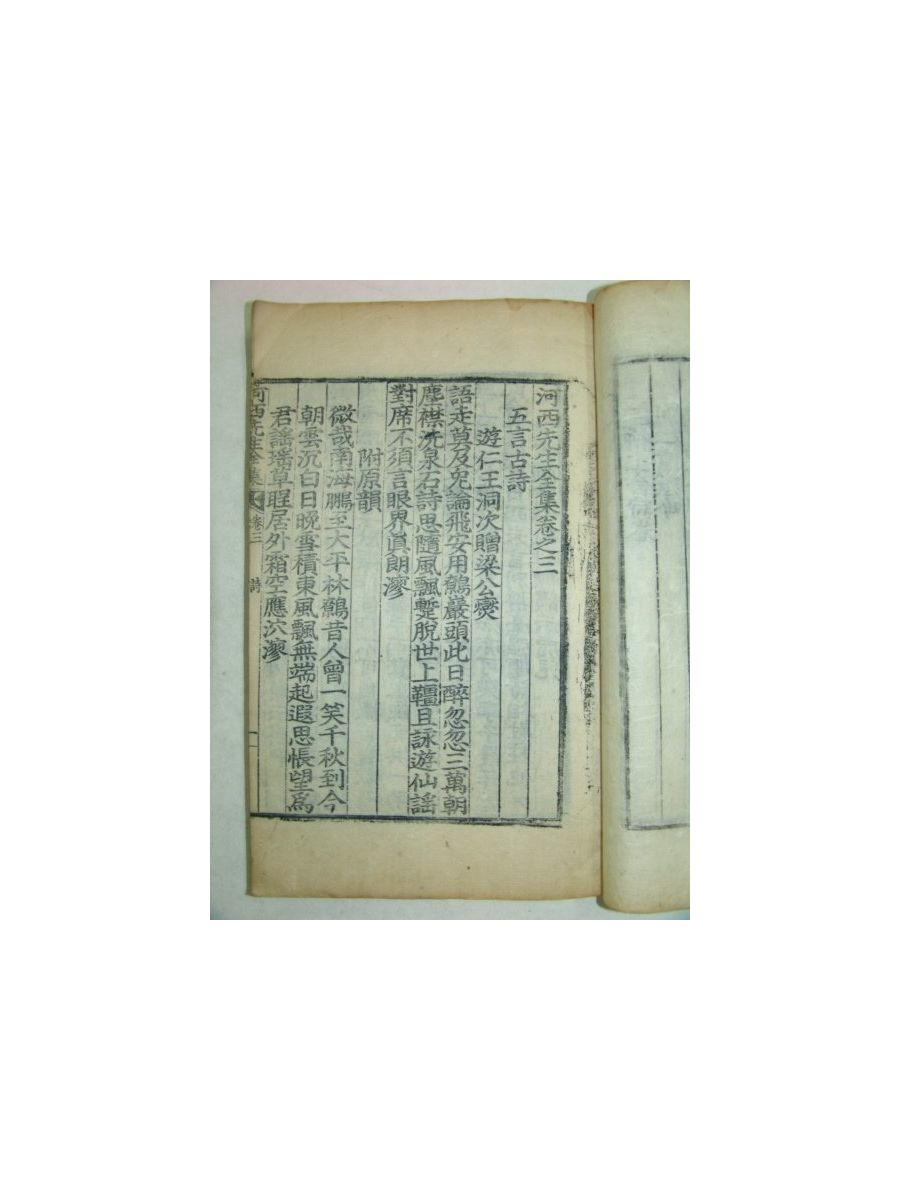 河西先生全集卷之三
五言古詩
遊仁王洞次贈梁公燮
語走莫及兔論飛安用鷦巖頭此日醉忽忽三萬朝
塵襟洗泉石詩思隨風飄蹔脫世上韁且詠遊仙謠
對席不須言眼界眞朗廖
附原韻
微哉南海鵬至大平林鷦昔人曾一笑千秋到今
朝雲沉白日晚雪積東風飄無端起遐思悵望爲
君謠瑤草 居外霜空應泬廖
河西先生全集 卷三 詩 一